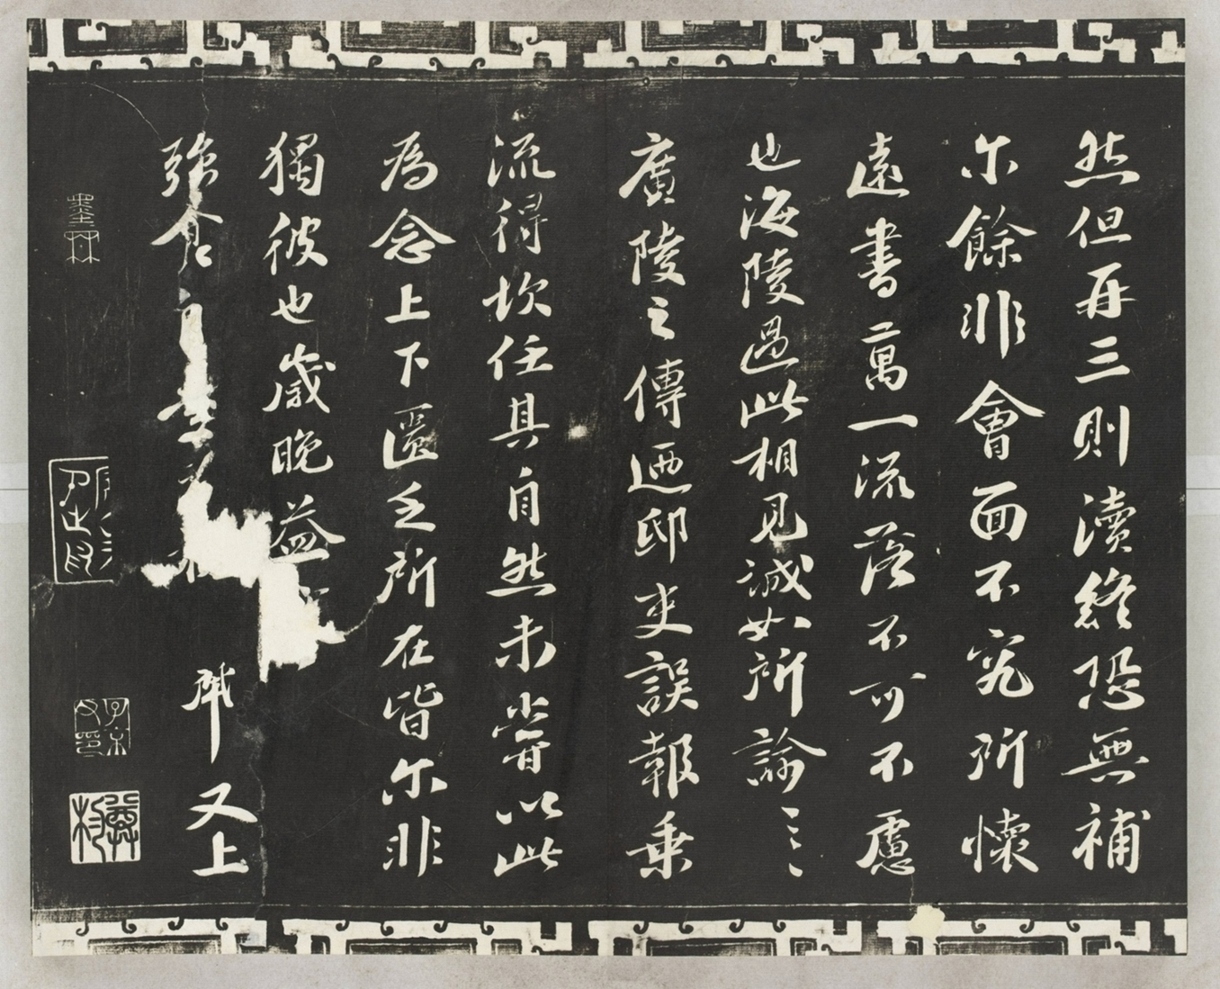 然但再三則瀆終恐無補
尔餘非會面不究所懷
遠書萬一流落不可不慮
也海陵過此相見誠如所諭〻
廣陵之傳迺邸吏誤報乗
流得坎任其自然未甞以此
為念上下匱乏所在皆尔非
獨彼也歲晚益
強食
又上
墨林